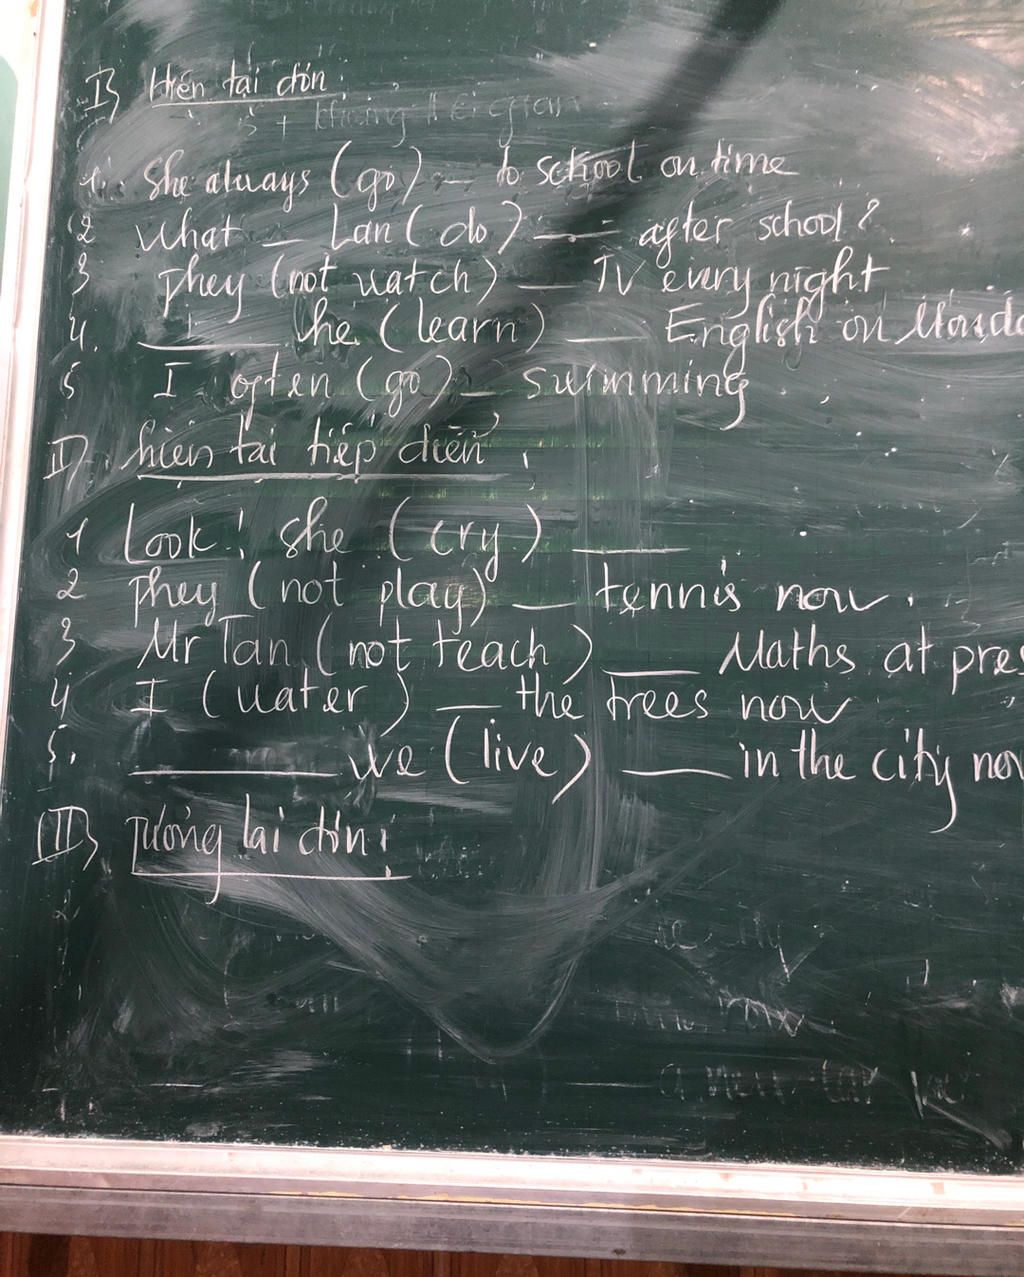 I) Hiện tại đơn:
S +
1. She always (go) _ to school on time
2 What _ Lan (do) __ after school?
3 They (not watch) __ TV every night
4. ____ he (learn) __ English on Monda
5 I often (go) _ swimming
II) hiện tại tiếp diễn:
1 Look! she (cry) ___
2 They (not play) __ tennis now.
3 Mr Tan (not teach) ___ Maths at pres
4 I (water) __ the trees now
5. ______ we (live) ___ in the city now
III) Tương lai đơn: